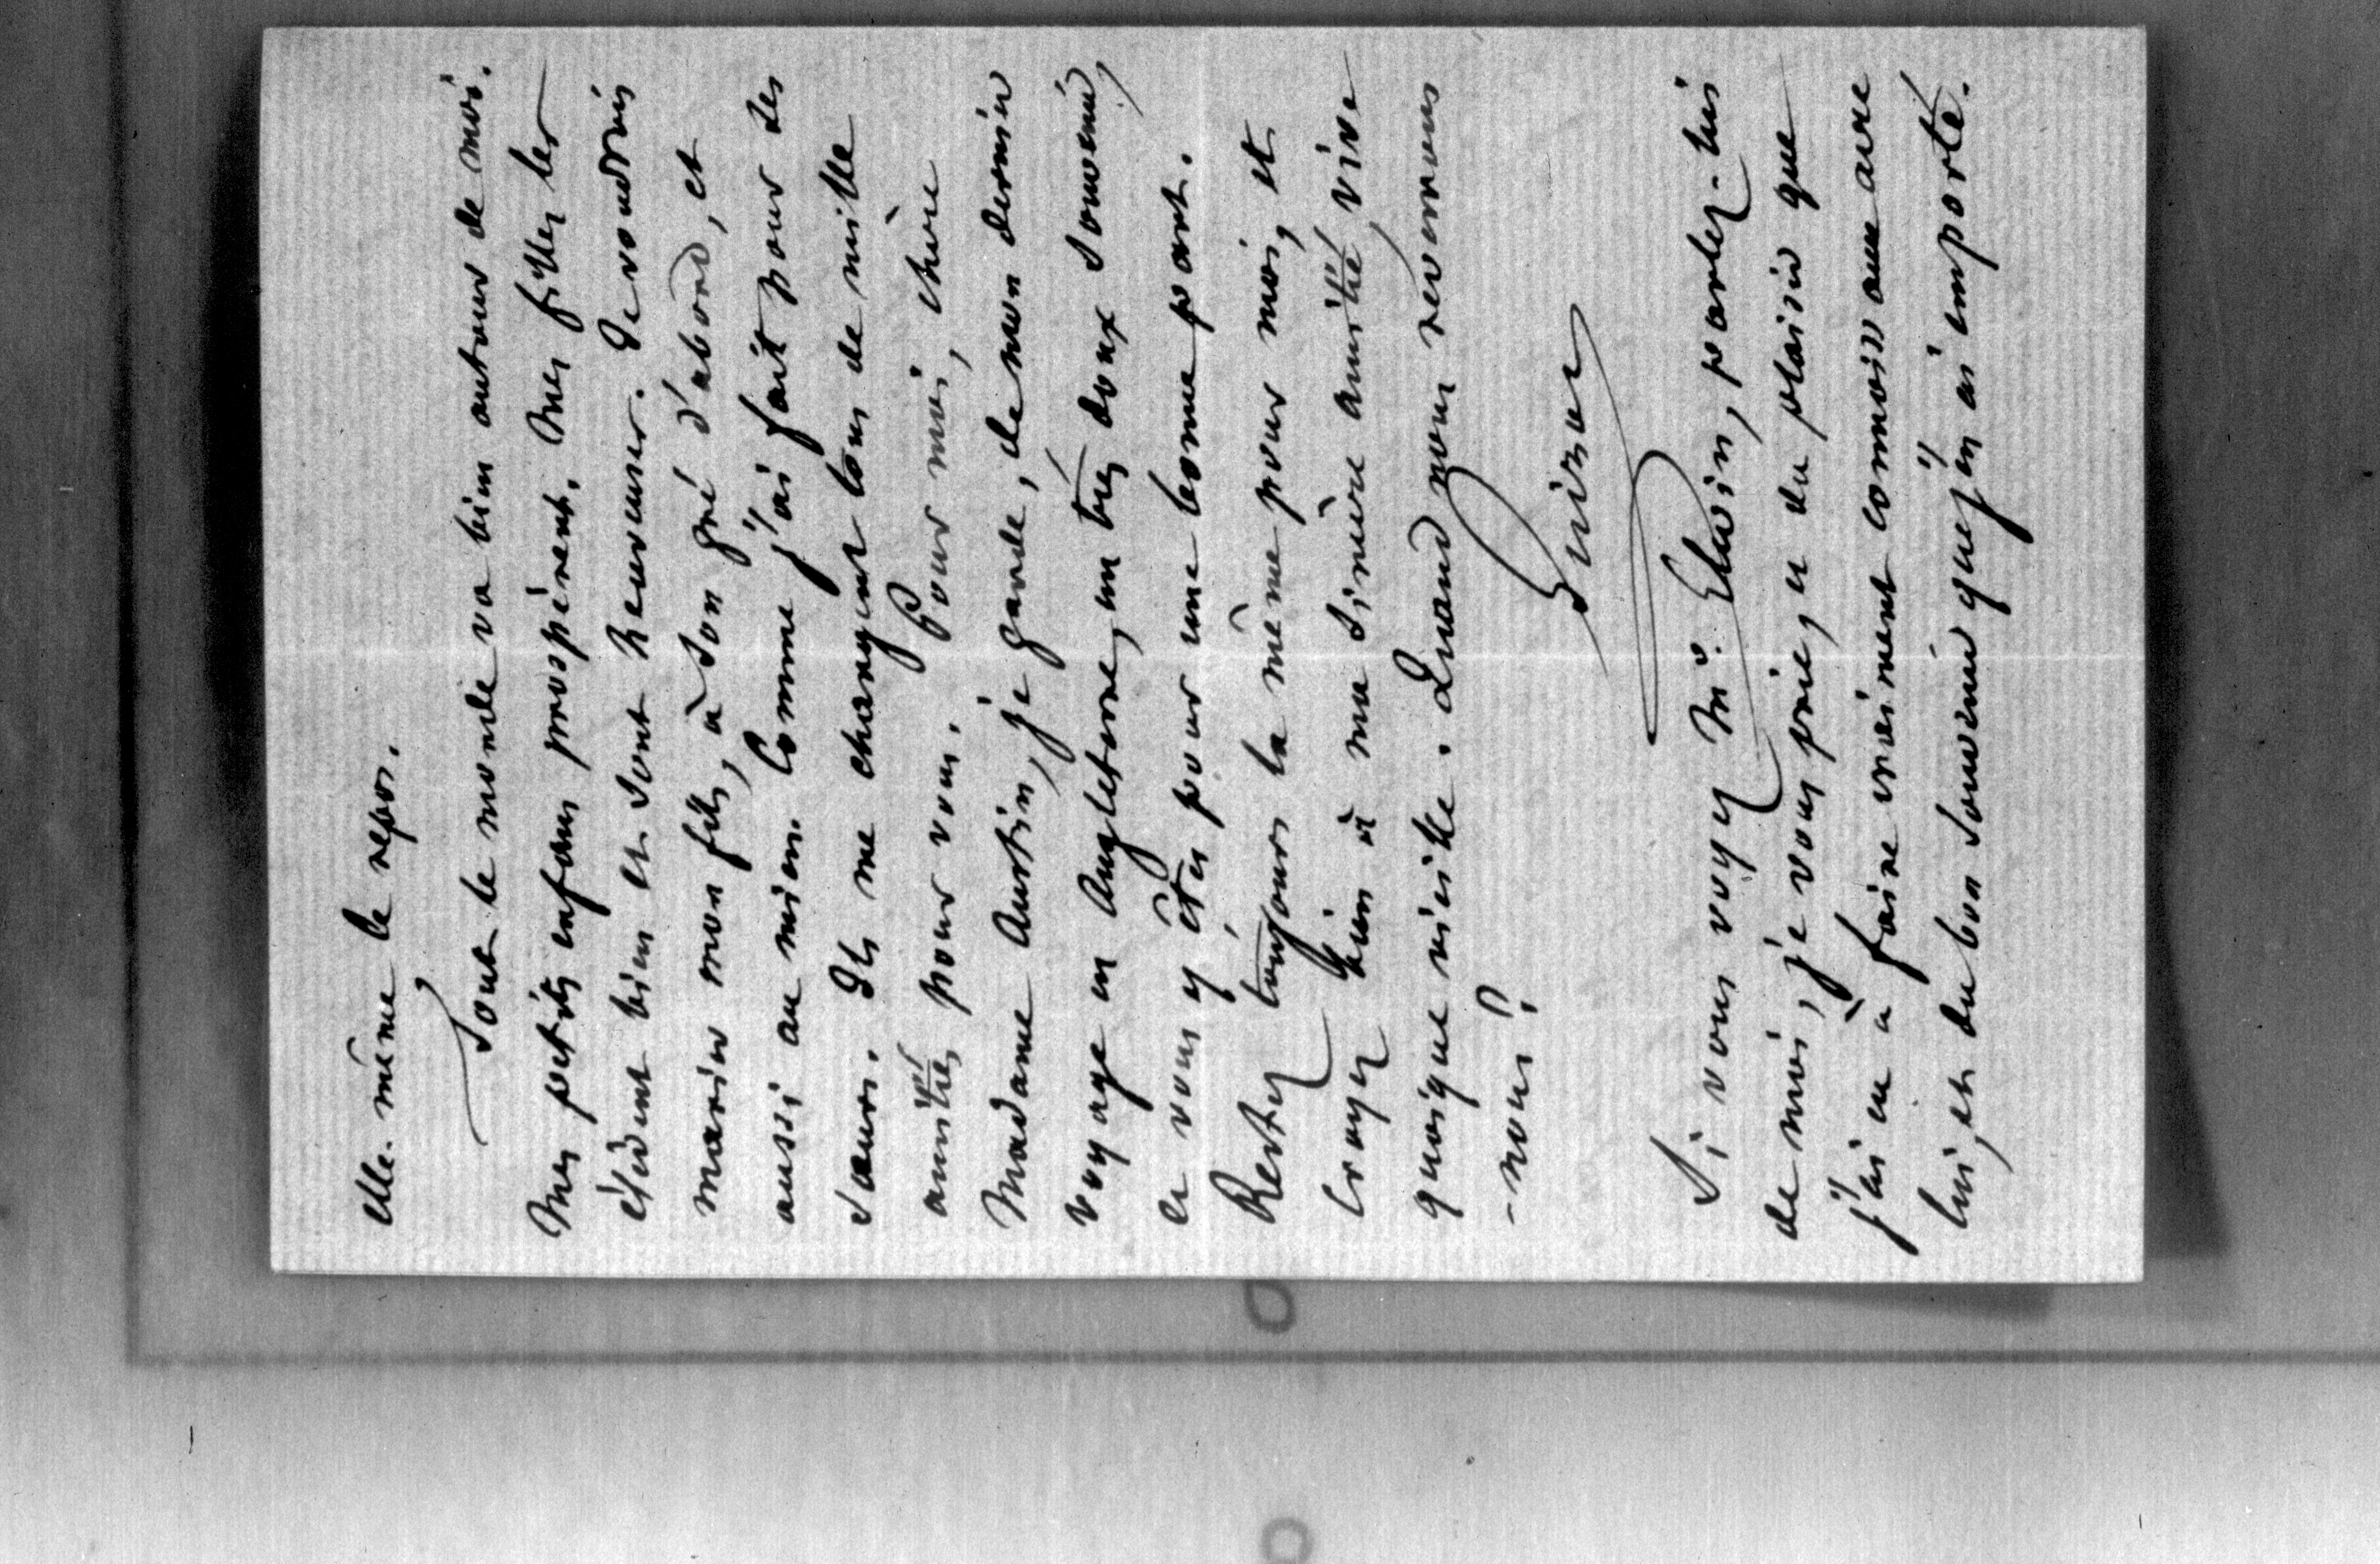 elle-même le repos.
Tout le monde va bien autour de moi.
Mes petits enfans prospèrent. Mes filles les
élèvent bien et sont heureuses. Je voudrais
marier mon fils, à son gré d'abord, et
aussi au mien. Comme j'ai fait pour ses
sœurs. Ils me chargent tous de mille
amitiés pour vous. Pour moi, chère
Madame Austin, je garde, de mon dernier
voyage en Angleterre, un très doux souvenir,
et vous y êtes pour une bonne part.
Restez toujours la même pour moi, et
croyez bien à ma sincère amitié, vive
quoique vieille. Quand nous reverrons
-nous?
Guizot
Si vous voyez Mr. Elwin, parlez-lui
de moi, je vous prie, et du plaisir que
j'ai eu à faire vraiment connoissance avec
lui, et du bon souvenir que j'en ai emporté.